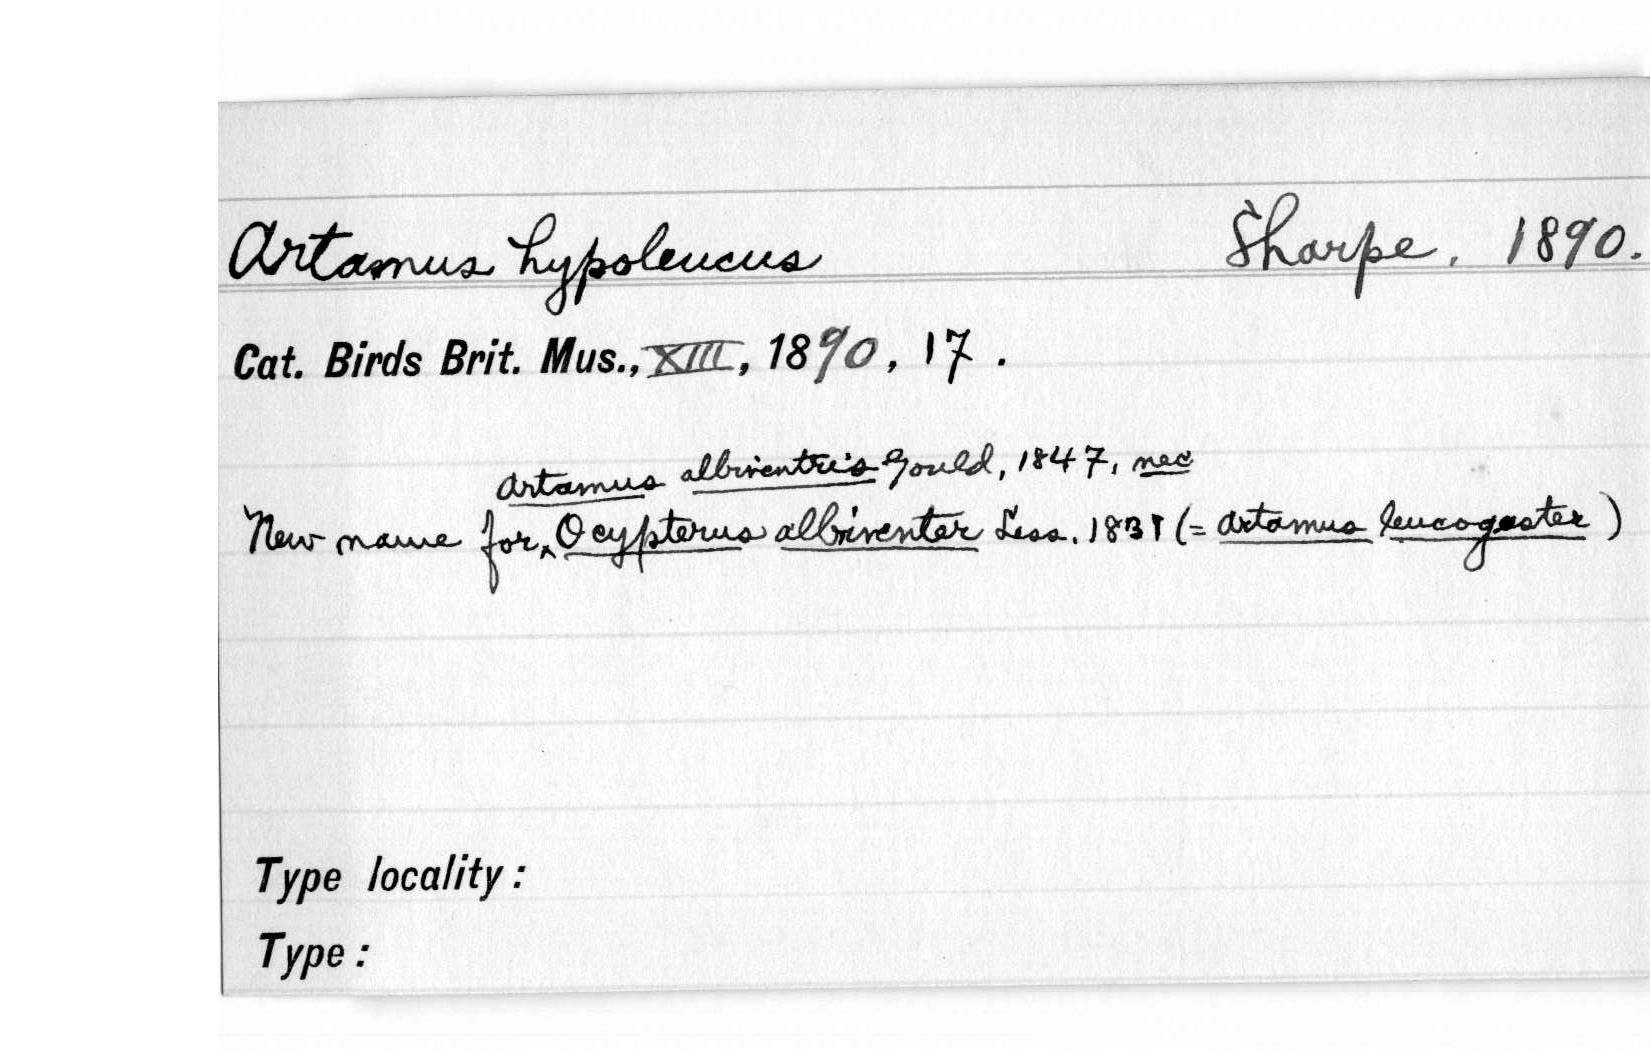 Artamus hypoleucus Sharpe, 1890.
Cat. Birds Brit. Mus., XIII, 1890, 17.
Artamus albiventris Gould, 1847, nec
New name for ‸ Ocypterus albiventer Less. 1831 (= Artamus leucogaster)
Type locality:
Type: